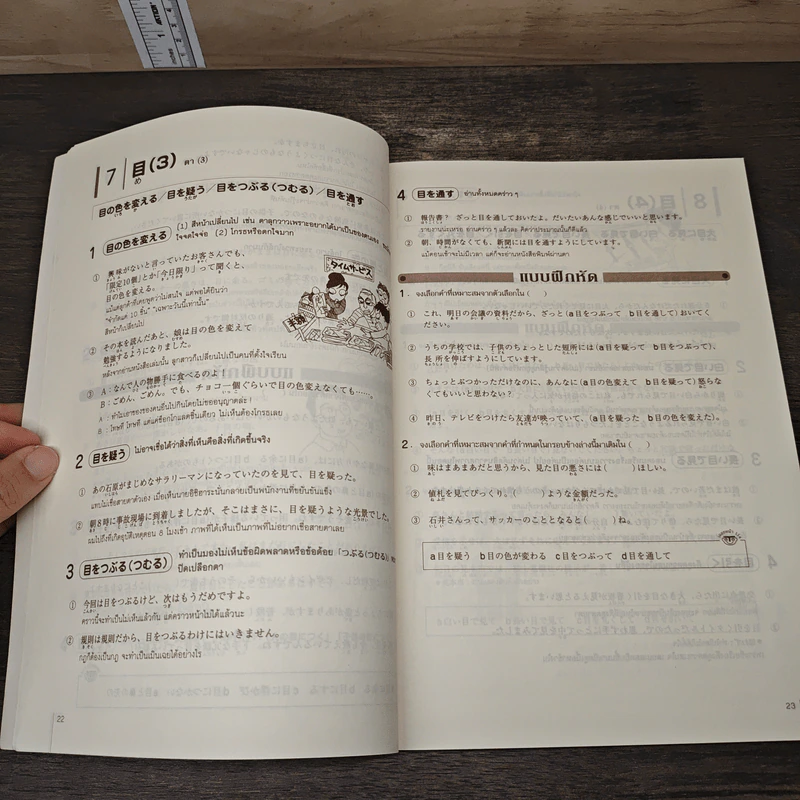 7 目(3) ตา (3)
目の色を変える/目を疑う/目をつぶる(つむる)/目を通す
1 目の色を変える (1) สีหน้าเปลี่ยนไป เช่น ตาลุกวาวเพราะอยากได้มาเป็นของตนเอง
ใจจดใจจ่อ (2) โกรธหรือตกใจมาก
① 興味がないと言っていたお客さんでも、
「限定10個」とか「今日限り」って聞くと、
目の色を変える。
แม้แต่ลูกค้าที่เคยพูดว่าไม่สนใจ แต่พอได้ยินว่า
"จำกัดแค่ 10 ชิ้น" "เฉพาะวันนี้เท่านั้น"
สีหน้าก็เปลี่ยนไป
タイムサービス
② その本を読んだあと、娘は目の色を変えて
勉強するようになりました。
หลังจากอ่านหนังสือเล่มนั้น ลูกสาวก็เปลี่ยนไปเป็นคนที่ตั้งใจเรียน
③ A:なんで人の物勝手に食べるのよ!
B:ごめん、ごめん。でも、チョコ一個ぐらいで目の色変えなくても……。
A : ทำไมเอาของของคนอื่นไปกินโดยไม่ขออนุญาตล่ะ!
B : โทษที โทษที แต่แค่ช็อกโกแลตชิ้นเดียว ไม่เห็นต้องโกรธเลย
2 目を疑う ไม่อาจเชื่อได้ว่าสิ่งที่เห็นคือสิ่งที่เกิดขึ้นจริง
① あの石原がまじめなサラリーマンになっていたのを見て、目を疑った。
แทบไม่เชื่อสายตาตัวเอง เมื่อเห็นนายอิชิฮาระนั่นกลายเป็นพนักงานที่ขยันขันแข็ง
② 朝8時に事故現場に到着しましたが、そこはまさに、目を疑うような光景でした。
ผมไปถึงที่เกิดอุบัติเหตุตอน 8 โมงเช้า ภาพที่ได้เห็นเป็นภาพที่ไม่อยากเชื่อสายตาเลย
3 目をつぶる(つむる) ทำเป็นมองไม่เห็นข้อผิดพลาดหรือข้อด้อย 「つぶる(つむる)」
ปิดเปลือกตา
① 今回は目をつぶるけど、次はもうだめですよ。
คราวนี้จะทำเป็นไม่เห็นแล้วกัน แต่คราวหน้าไม่ได้แล้วนะ
② 規則は規則だから、目をつぶるわけにはいきません。
กฎก็ต้องเป็นกฎ จะทำเป็นเมินเฉยได้อย่างไร
22
4 目を通す อ่านทั้งหมดคร่าว ๆ
① 報告書? ざっと目を通しておいたよ。だいたいあんな感じでいいと思います。
รายงานน่ะเหรอ อ่านคร่าว ๆ แล้วล่ะ คิดว่าประมาณนั้นก็ดีแล้ว
② 朝、時間がなくても、新聞には目を通すようにしています。
แม้ตอนเช้าจะไม่มีเวลา แต่ก็จะอ่านหนังสือพิมพ์ผ่านตา
แบบฝึกหัด
1. จงเลือกคำที่เหมาะสมจากตัวเลือกใน ( )
① これ、明日の会議の資料だから、ざっと(a目をつぶって b目を通して)おいてく
ださい。
② うちの学校では、子供のちょっとした短所には(a目を疑って b目をつぶって)、
長所を伸ばすようにしています。
③ ちょっとぶつかっただけなのに、あんなに(a目の色変えて b目を疑って)怒らな
くてもいいと思わない?
④ 昨日、テレビをつけたら友達が映っていて、(a目を疑った b目の色を変えた)。
2. จงเลือกคำที่เหมาะสมจากคำที่กำหนดในกรอบข้างล่างนี้มาเติมใน ( )
① 味はまあまあだと思うから、見た目の悪さには( )ほしい。
② 値札を見てびっくり、( )ような金額だった。
③ 石井さんって、サッカーのこととなると( )ね。
a目を疑う b目の色が変わる c目をつぶって d目を通して
23